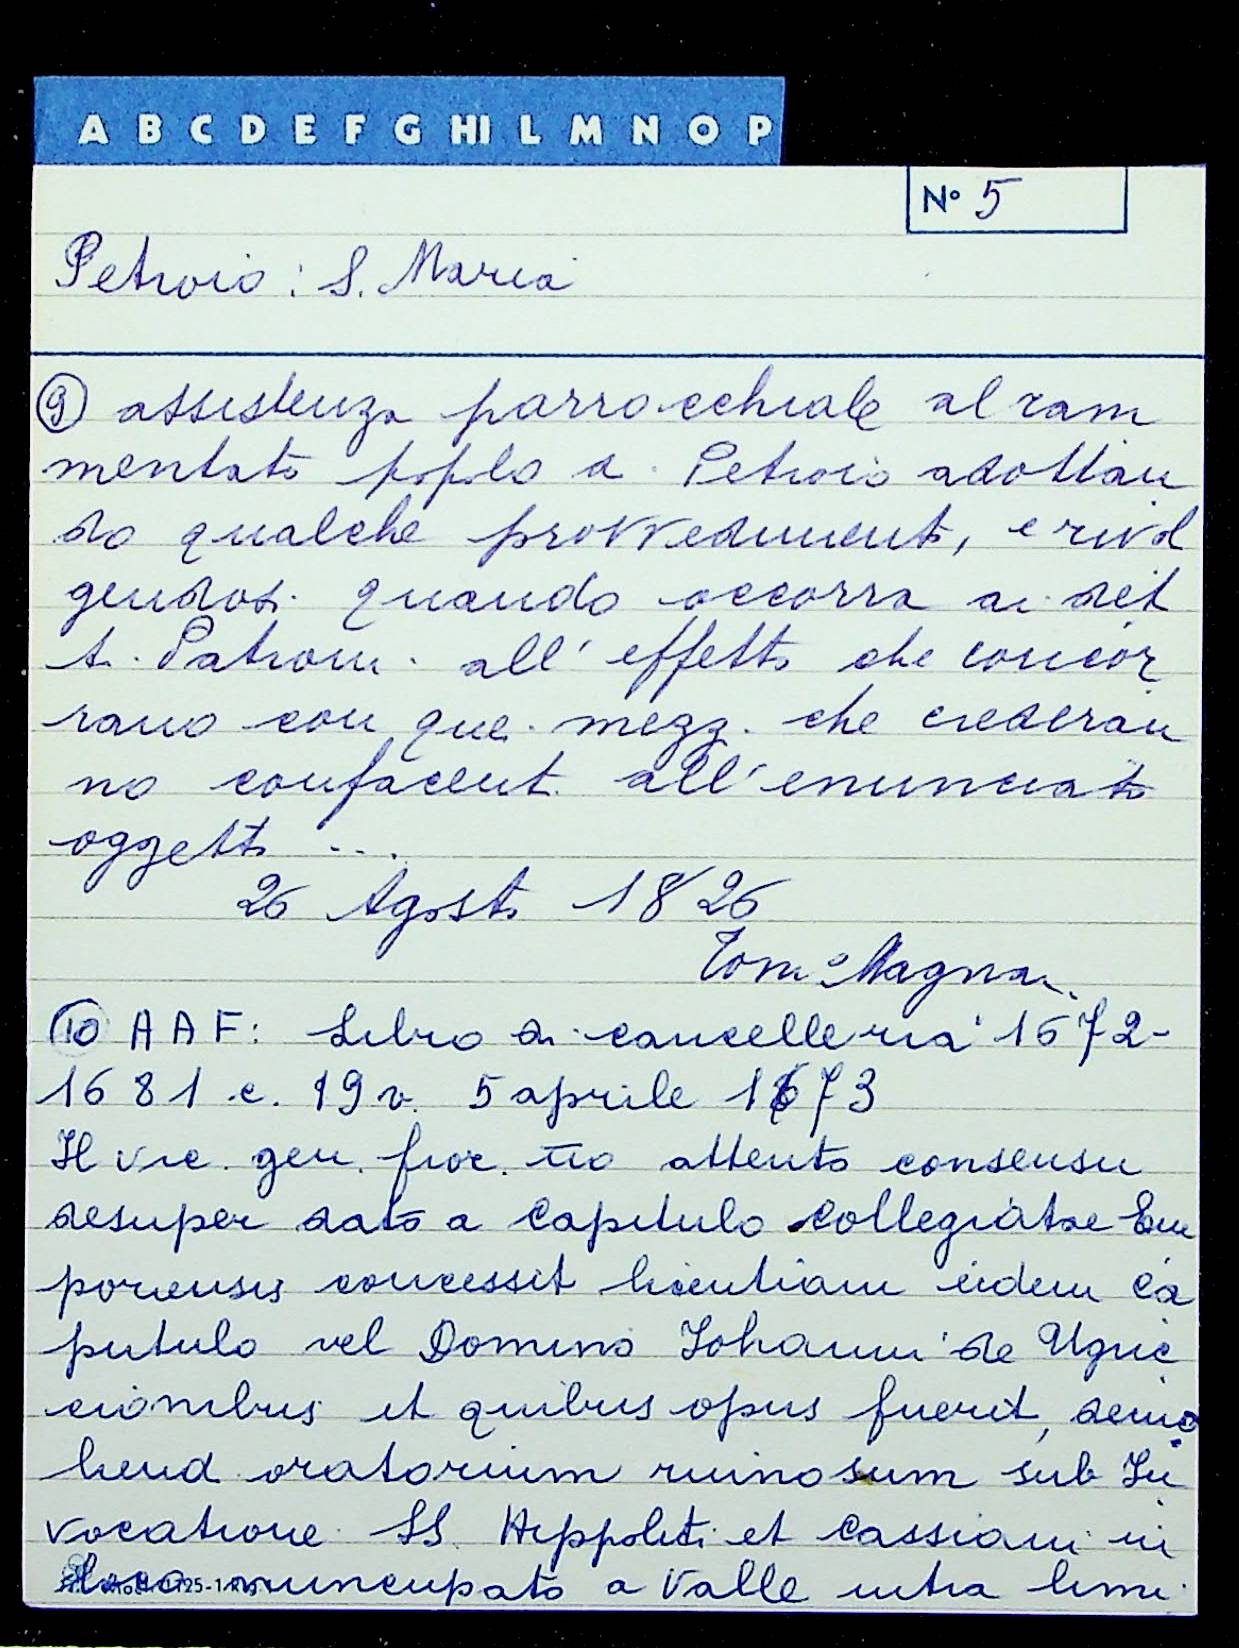 A B C D E F G HI L M N O P
N° 5
Petroio: S. Maria
9 assistenza parrocchiale al ram
mentato popolo di Petroio adottan
do qualche provvedimento, e rivol
gendosi quando occorra ai det
ti Patroni all'effetto che concor
rano con quei mezzi che crederan
no confacenti all'enunciato
oggetto ...
26 Agosto 1826
Tom.° Magnani
10 AAF: Libro di cancelleria 1672-
1681 c. 19 v. 5 aprile 1673
Il vic. gen. fior. attento consensu
desuper dato a Capitulo Collegiatae Em
poriensis concessit licentiam eidem Ca
pitulo vel Domino Johanni de Uguic
cionibus et quibus opus fuerit, demo
liend oratorium ruinosum sub In
vocatione SS. Hippoliti et Cassiani in
loco nuncupato a Valle intra limi